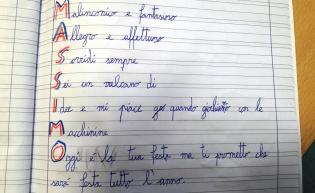 Malinconico e fantasioso
Allegro e affettuoso
Sorridi sempre
Sei un vulcano di
Idee e mi piace quando giochiamo con le
Macchinine
Oggi è la tua festa ma ti prometto che
sarà festa tutto l'anno.